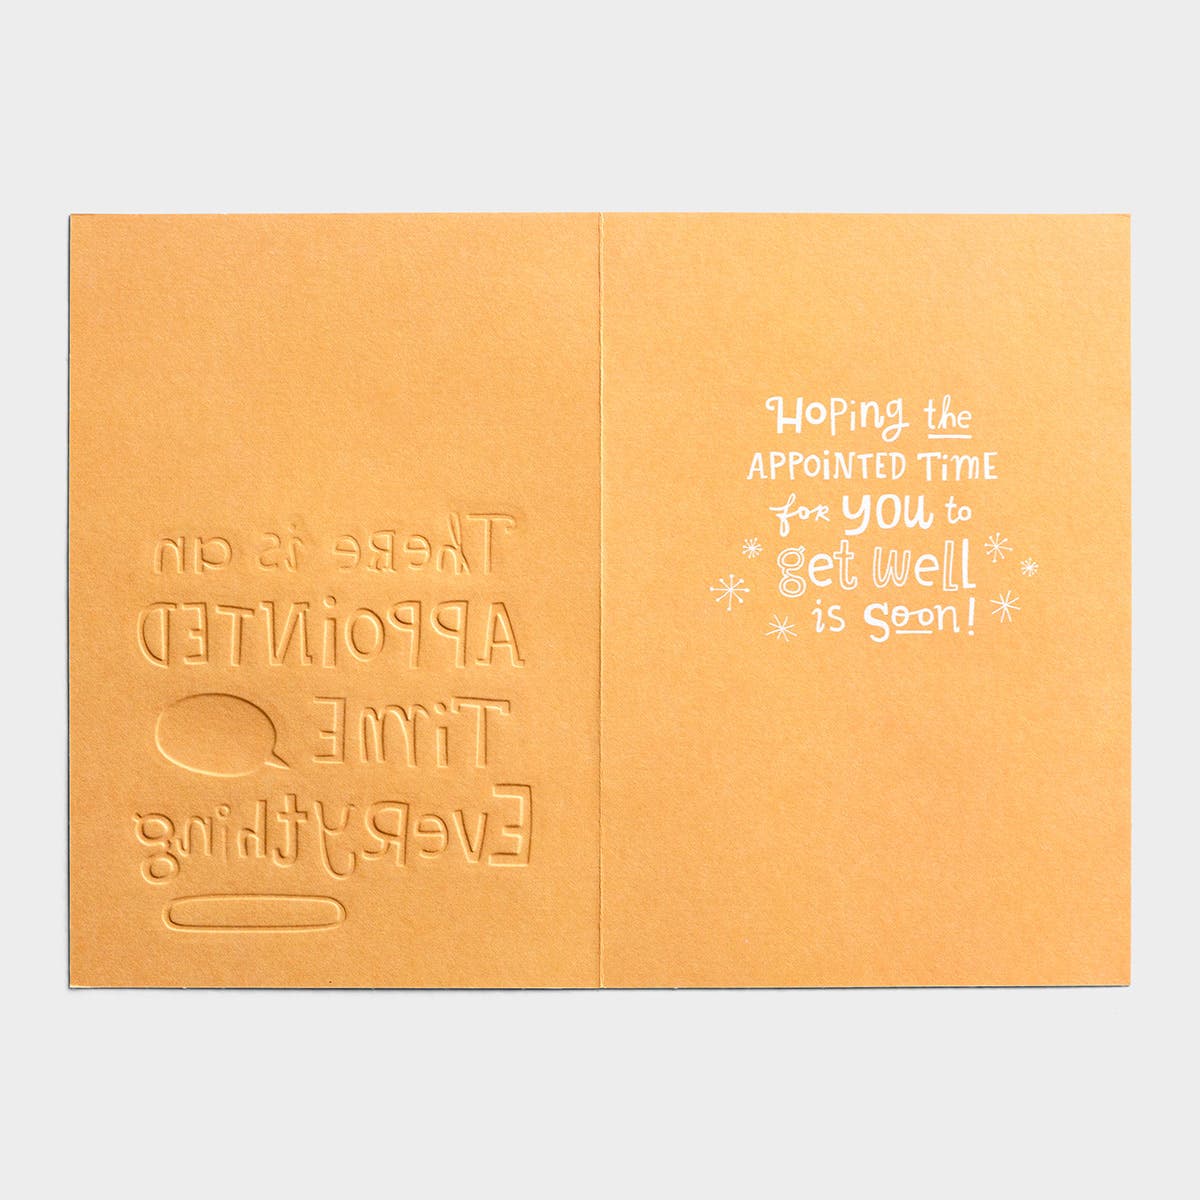 There is an
APPOiNTED
TimE
EveRything
Hoping the
APPOiNTED TimE
for you to
get well
is soon!